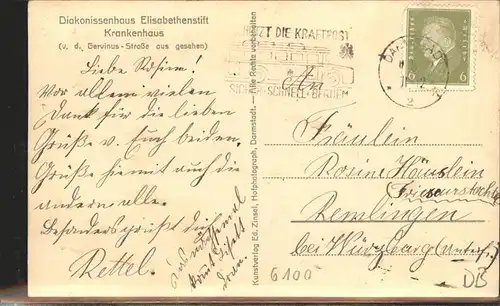 Diakonissenhaus Elisabethenstift
Krankenhaus
(v. d. Gervinus-Straße aus gesehen)
Liebe Rosine!
Vor allem vielen
Dank für die lieben
Grüße v. Euch beiden.
Grüße hiemit auch die
andern alle.
Besonders grüßt Dich
Rettel.
Kunstverlag Ed. Zinsel, Hofphotograph, Darmstadt. — Alle Rechte vorbehalten
NUTZT DIE KRAFTPOST
SICHER-SCHNELL-BEQUEM
DARMSTADT
2
6 6
An
Fräulein
Rosine Häuslein
Remlingen
bei Würzburg (Unterfr.)
6100
DB